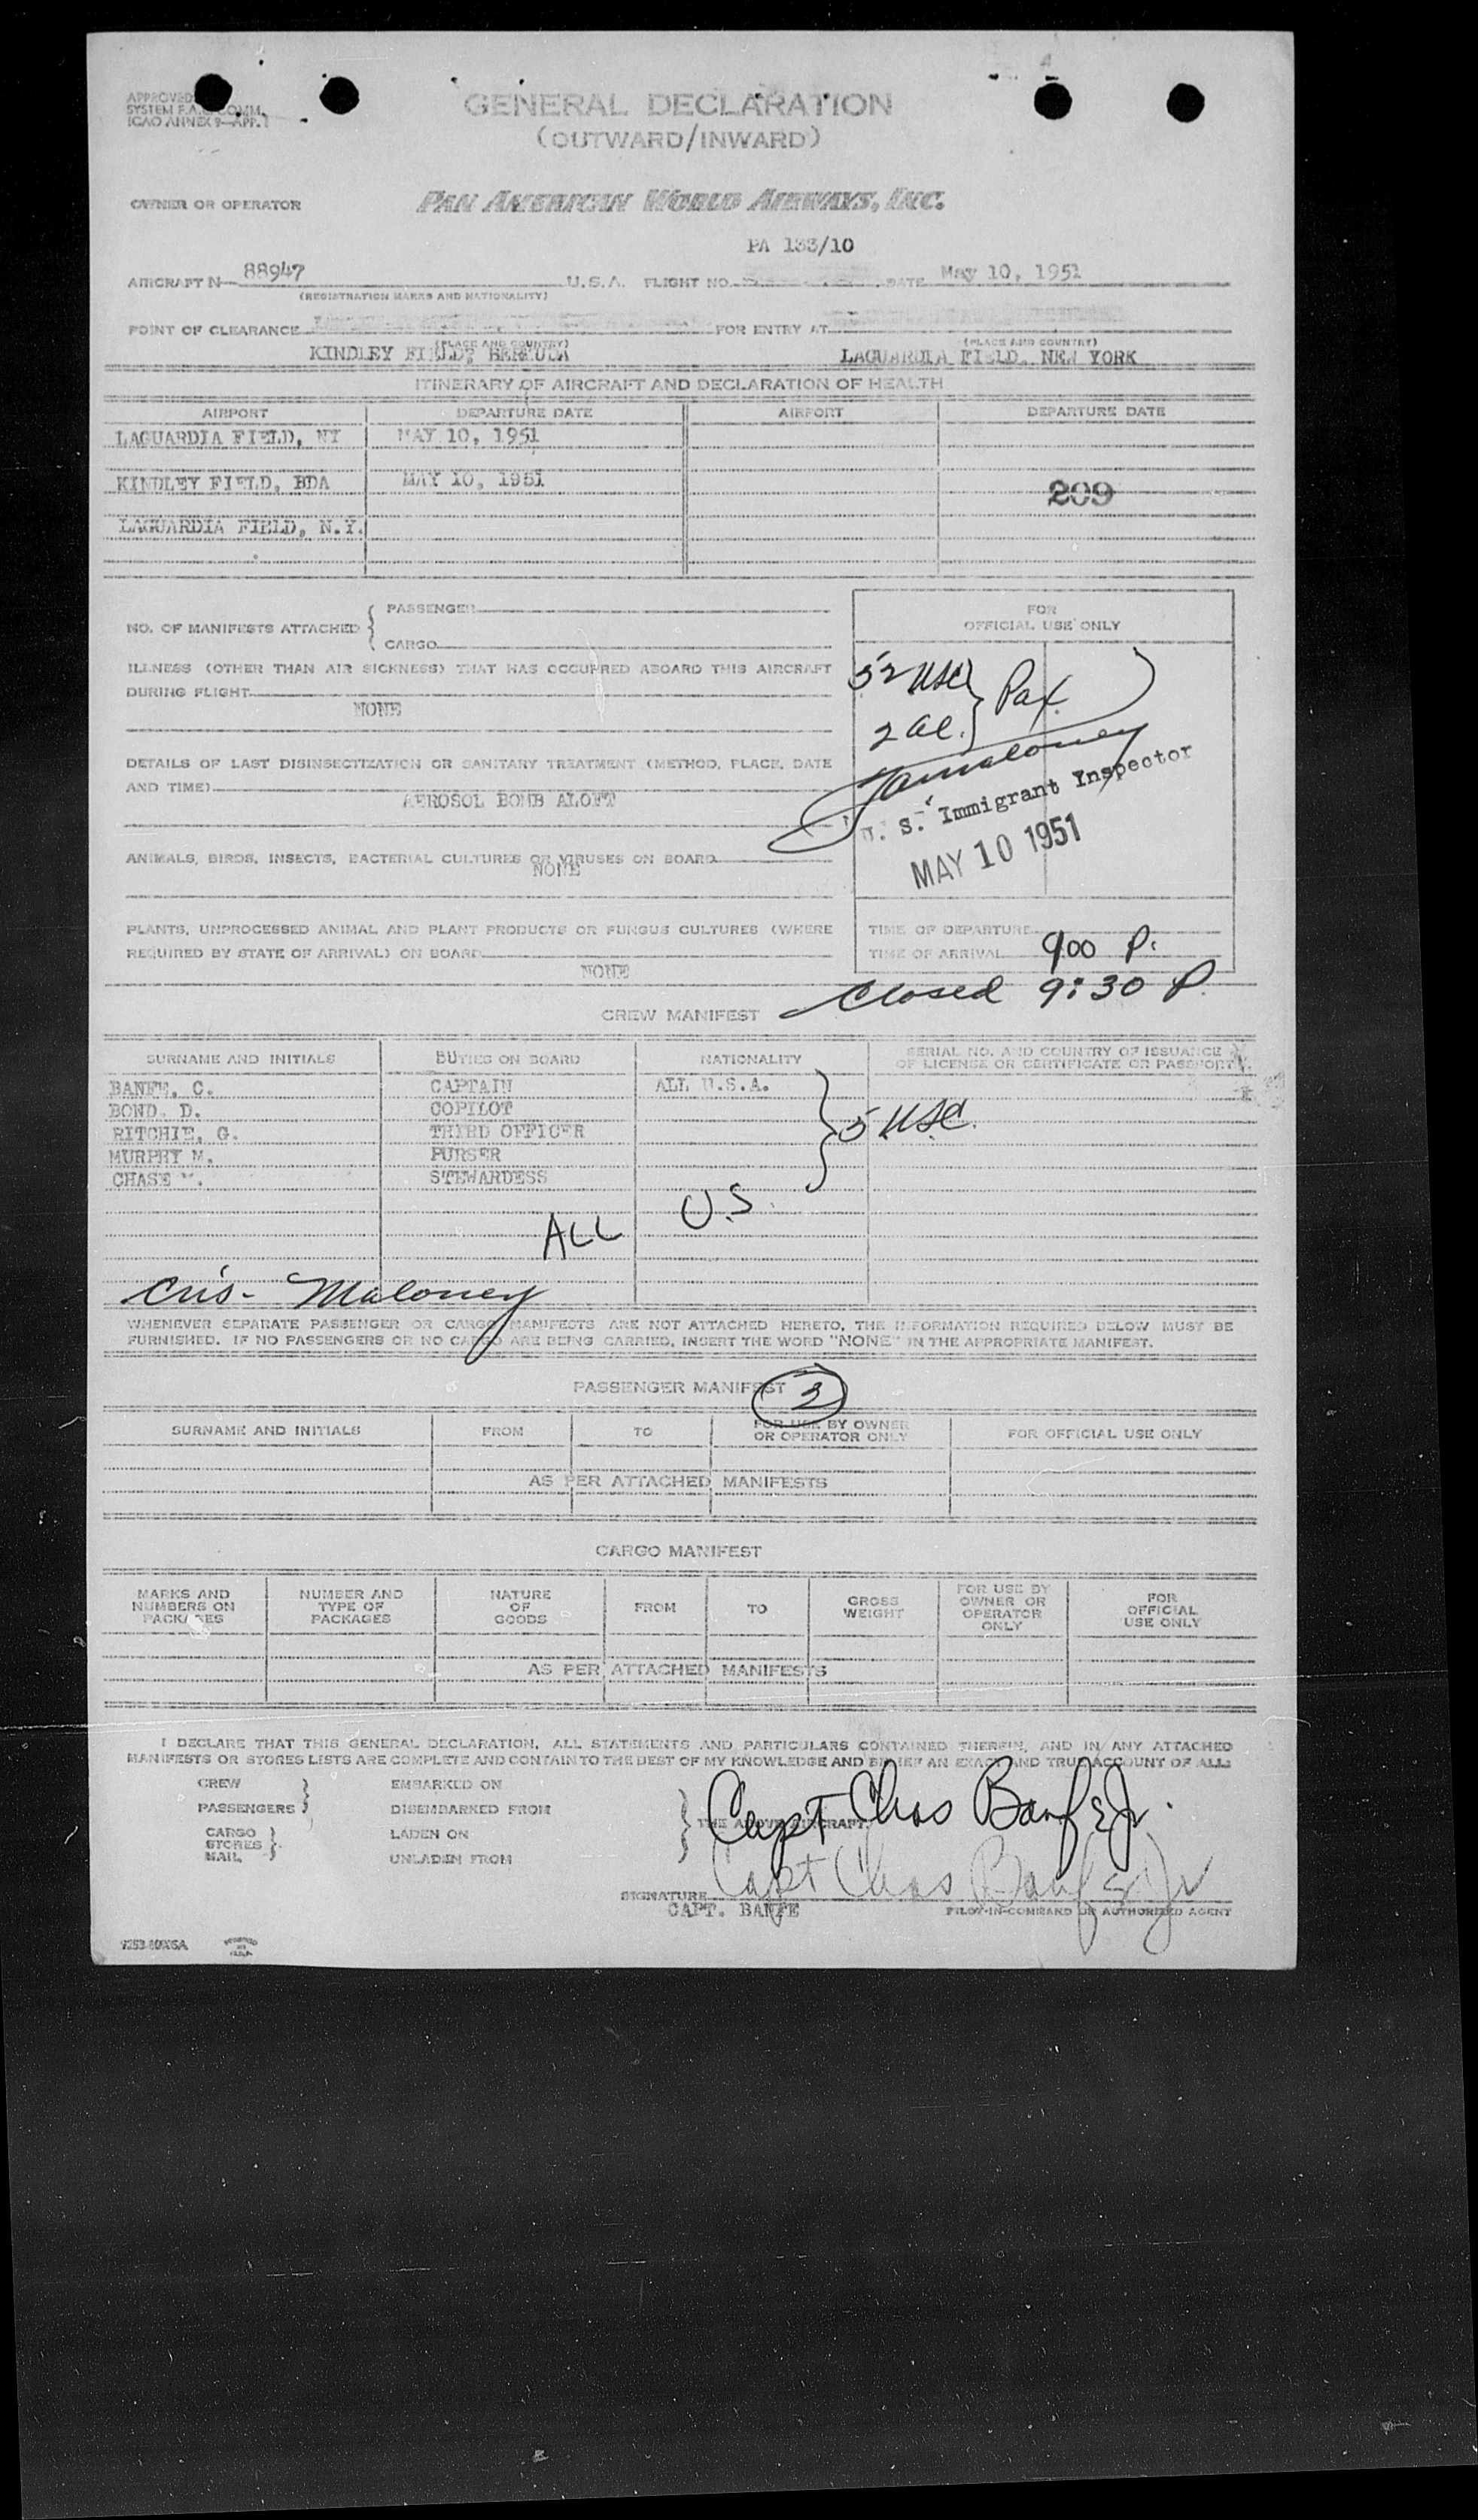 GENERAL DECLARATION
(OUTWARD/INWARD)
APPROVED
SYSTEM COMM.
ICAO ANNEX 9—APP. 1
OWNER OR OPERATOR PAN AMERICAN WORLD AIRWAYS, INC.
PA 133/10
AIRCRAFT N 88947 U.S.A. FLIGHT NO. DATE May 10, 1951
(REGISTRATION MARKS AND NATIONALITY)
POINT OF CLEARANCE FOR ENTRY AT
(PLACE AND COUNTRY) (PLACE AND COUNTRY)
KINDLEY FIELD, BERMUDA LAGUARDIA FIELD, NEW YORK
ITINERARY OF AIRCRAFT AND DECLARATION OF HEALTH
AIRPORT DEPARTURE DATE AIRPORT DEPARTURE DATE
LAGUARDIA FIELD, NY MAY 10, 1951
KINDLEY FIELD, BDA MAY 10, 1951
209
LAGUARDIA FIELD, N.Y.
NO. OF MANIFESTS ATTACHED { PASSENGER
CARGO
FOR
OFFICIAL USE ONLY
ILLNESS (OTHER THAN AIR SICKNESS) THAT HAS OCCURRED ABOARD THIS AIRCRAFT
DURING FLIGHT
NONE
52 USC } Pax
2 al.
Maloney
U. S. Immigrant Inspector
MAY 10 1951
DETAILS OF LAST DISINSECTIZATION OR SANITARY TREATMENT (METHOD, PLACE, DATE
AND TIME)
AEROSOL BOMB ALOFT
ANIMALS, BIRDS, INSECTS, BACTERIAL CULTURES OR VIRUSES ON BOARD
NONE
PLANTS, UNPROCESSED ANIMAL AND PLANT PRODUCTS OR FUNGUS CULTURES (WHERE
REQUIRED BY STATE OF ARRIVAL) ON BOARD
NONE
TIME OF DEPARTURE
TIME OF ARRIVAL 900 P.
Closed 9:30 P.
CREW MANIFEST
SURNAME AND INITIALS DUTIES ON BOARD NATIONALITY SERIAL NO. AND COUNTRY OF ISSUANCE
OF LICENSE OR CERTIFICATE OR PASSPORT
BANFE, C. CAPTAIN ALL U.S.A.
BOND, D. COPILOT
RITCHIE, G. THIRD OFFICER } 5 USC.
MURPHY M. PURSER
CHASE STEWARDESS
ALL U.S.
Cris - Maloney
WHENEVER SEPARATE PASSENGER OR CARGO MANIFESTS ARE NOT ATTACHED HERETO, THE INFORMATION REQUIRED BELOW MUST BE
FURNISHED. IF NO PASSENGERS OR NO CARGO ARE BEING CARRIED, INSERT THE WORD "NONE" IN THE APPROPRIATE MANIFEST.
PASSENGER MANIFEST
SURNAME AND INITIALS FROM TO FOR USE BY OWNER
OR OPERATOR ONLY FOR OFFICIAL USE ONLY
AS PER ATTACHED MANIFESTS
CARGO MANIFEST
MARKS AND
NUMBERS ON
PACKAGES
NUMBER AND
TYPE OF
PACKAGES
NATURE
OF
GOODS
FROM
TO
GROSS
WEIGHT
FOR USE BY
OWNER OR
OPERATOR
ONLY
FOR
OFFICIAL
USE ONLY
AS PER ATTACHED MANIFESTS
I DECLARE THAT THIS GENERAL DECLARATION, ALL STATEMENTS AND PARTICULARS CONTAINED THEREIN, AND IN ANY ATTACHED
MANIFESTS OR STORES LISTS ARE COMPLETE AND CONTAIN TO THE BEST OF MY KNOWLEDGE AND BELIEF AN EXACT AND TRUE ACCOUNT OF ALL:
CREW EMBARKED ON
PASSENGERS } DISEMBARKED FROM
CARGO LADEN ON
STORES }
MAIL UNLADEN FROM
THE ABOVE AIRCRAFT
Capt Chas Banfe Jr.
Capt Chas Banfe Jr
SIGNATURE
CAPT. BANFE PILOT-IN-COMMAND OR AUTHORIZED AGENT
PRINTED
IN
U.S.A.